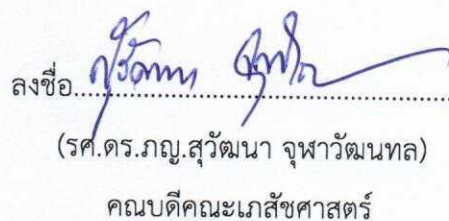 ลงชื่อ..............................................
(รศ.ดร.ภญ.สุวัฒนา จุฬาวัฒนทล)
คณบดีคณะเภสัชศาสตร์